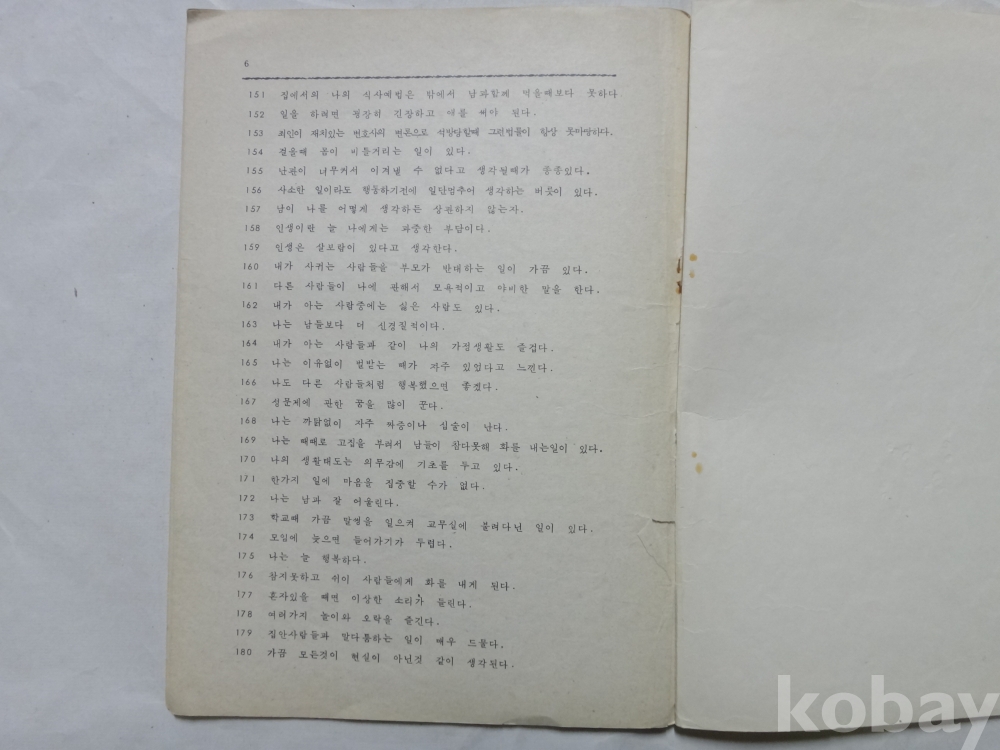 6
151 집에서의 나의 식사예법은 밖에서 남과함께 먹을때보다 못하다
152 일을 하려면 굉장히 긴장하고 애를 써야 된다.
153 죄인이 재치있는 변호사의 변론으로 석방당할때 그런법률이 항상 못마땅하다.
154 걸을때 몸이 비틀거리는 일이 있다.
155 난관이 너무커서 이겨낼 수 없다고 생각될때가 종종있다.
156 사소한 일이라도 행동하기전에 일단멈추어 생각하는 버릇이 있다.
157 남이 나를 어떻게 생각하든 상관하지 않는자.
158 인생이란 늘 나에게는 과중한 부담이다.
159 인생은 살보람이 있다고 생각한다.
160 내가 사귀는 사람들을 부모가 반대하는 일이 가끔 있다.
161 다른 사람들이 나에 관해서 모욕적이고 야비한 말을 한다.
162 내가 아는 사람중에는 싫은 사람도 있다.
163 나는 남들보다 더 신경질적이다.
164 내가 아는 사람들과 같이 나의 가정생활도 즐겁다.
165 나는 이유없이 벌받는 때가 자주 있었다고 느낀다.
166 나도 다른 사람들처럼 행복했으면 좋겠다.
167 성문제에 관한 꿈을 많이 꾼다.
168 나는 까닭없이 자주 짜증이나 심술이 난다.
169 나는 때때로 고집을 부려서 남들이 참다못해 화를 내는일이 있다.
170 나의 생활태도는 의무감에 기초를 두고 있다.
171 한가지 일에 마음을 집중할 수가 없다.
172 나는 남과 잘 어울린다.
173 학교때 가끔 말썽을 일으켜 교무실에 불려다닌 일이 있다.
174 모임에 늦으면 들어가기가 두렵다.
175 나는 늘 행복하다.
176 참지못하고 쉬이 사람들에게 화를 내게 된다.
177 혼자있을 때면 이상한 소리가 들린다.
178 여러가지 놀이와 오락을 즐긴다.
179 집안사람들과 말다툼하는 일이 매우 드물다.
180 가끔 모든것이 현실이 아닌것 같이 생각된다.
kobay